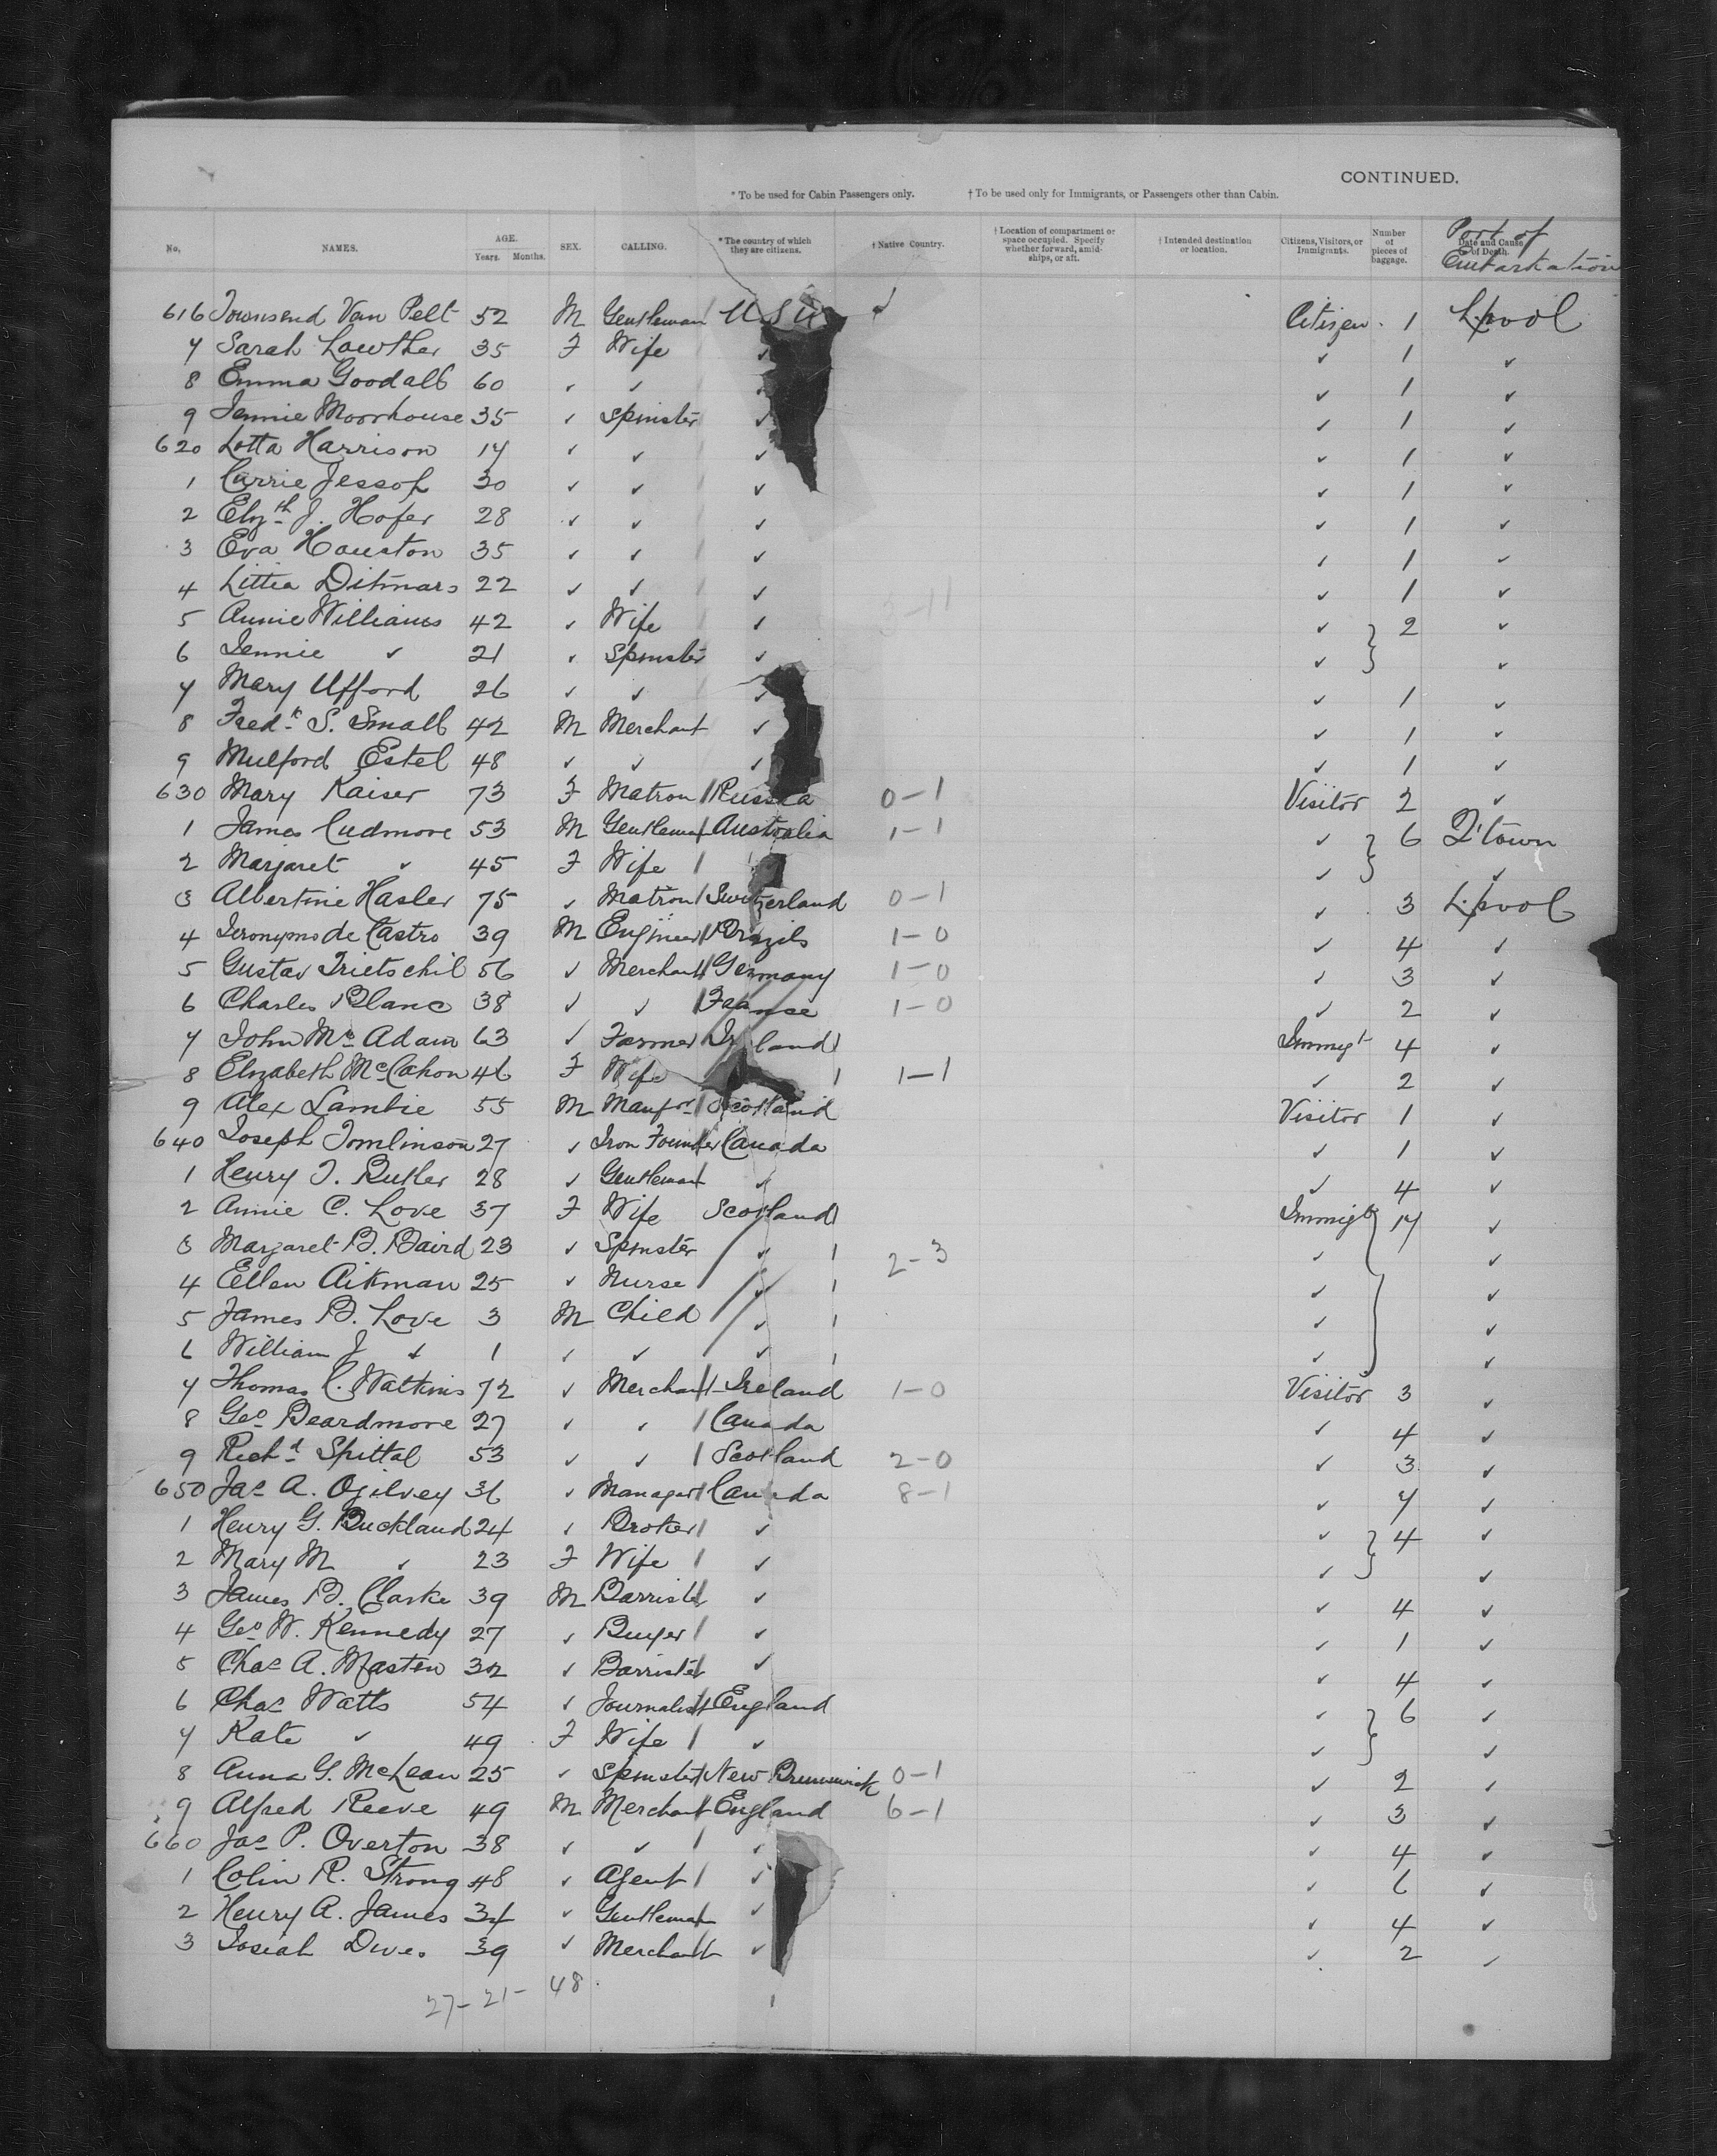 CONTINUED.
* To be used for Cabin Passengers only. † To be used only for Immigrants, or Passengers other than Cabin.
No. NAMES. AGE. Years. Months. SEX. CALLING. * The country of which they are citizens. † Native Country. † Location of compartment or space occupied. Specify whether forward, amidships, or aft. † Intended destination or location. Citizens, Visitors, or Immigrants. Number of pieces of baggage. Date and Cause of Death. Port of Embarkation
616 Townsend Van Pelt 52 M Gentleman U.S.A ✓ Citizen 1 L'pool
7 Sarah Lowther 35 F Wife ✓ ✓ 1 ✓
8 Emma Goodall 60 ✓ ✓ ✓ 1 ✓
9 Jennie Moorhouse 35 ✓ Spinster ✓ ✓ 1 ✓
620 Lotta Harrison 17 ✓ ✓ ✓ ✓ 1 ✓
1 Carrie Jessop 30 ✓ ✓ ✓ ✓ 1 ✓
2 Elizth J. Hofer 28 ✓ ✓ ✓ ✓ 1 ✓
3 Eva Houston 35 ✓ ✓ ✓ ✓ 1 ✓
4 Littia Ditmars 22 ✓ ✓ ✓ ✓ 1 ✓
5 Annie Williams 42 ✓ Wife ✓ ✓ } 2 ✓
6 Jennie ✓ 21 ✓ Spinster ✓ ✓ ✓
7 Mary Ufford 26 ✓ ✓ ✓ ✓ 1 ✓
8 Fredk S. Small 42 M Merchant ✓ ✓ 1 ✓
9 Mulford Estel 48 ✓ ✓ ✓ ✓ 1 ✓
630 Mary Kaiser 73 F Matron Russia 0-1 Visitor 2 ✓
1 James Cudmore 53 M Gentleman Australia 1-1 ✓ } 6 Q'town
2 Margaret ✓ 45 F Wife ✓ ✓
3 Albertine Hasler 75 ✓ Matron Switzerland 0-1 ✓ 3 L'pool
4 Jeronymo de Castro 39 M Engineer Brazils 1-0 ✓ 4 ✓
5 Gustav Trietschil 56 ✓ Merchant Germany 1-0 ✓ 3 ✓
6 Charles Blanc 38 ✓ ✓ Franse 1-0 ✓ 2 ✓
7 John Mc Adam 63 ✓ Farmer Ireland Immigt 4 ✓
8 Elizabeth McCahon 46 F Wife 1-1 ✓ 2 ✓
9 Alex Lambie 55 M Manfr Scotland Visitor 1 ✓
640 Joseph Tomlinson 27 ✓ Iron Founder Canada ✓ 1 ✓
1 Henry T. Butler 28 ✓ Gentleman ✓ ✓ 4 ✓
2 Annie C. Love 37 F Wife Scotland Immigt } 17 ✓
3 Margaret B. Baird 23 ✓ Spinster ✓ 2-3 ✓ ✓
4 Ellen Aitkman 25 ✓ Nurse ✓ ✓ ✓
5 James B. Love 3 M Child ✓ ✓ ✓
6 William J ✓ 1 ✓ ✓ ✓ ✓ ✓
7 Thomas C. Watkins 72 ✓ Merchant Ireland 1-0 Visitor 3 ✓
8 Geo Beardmore 27 ✓ ✓ Canada ✓ 4 ✓
9 Richd Spittal 53 ✓ ✓ Scotland 2-0 ✓ 3 ✓
650 Jas A. Ogilvey 36 ✓ Manager Canada 8-1 ✓ 7 ✓
1 Henry G. Buckland 24 ✓ Broker ✓ ✓ } 4 ✓
2 Mary M ✓ 23 F Wife ✓ ✓ ✓
3 James B. Clarke 39 M Barrister ✓ ✓ 4 ✓
4 Geo W. Kennedy 27 ✓ Buyer ✓ ✓ 1 ✓
5 Chas A. Masten 32 ✓ Barrister ✓ ✓ 4 ✓
6 Chas Watts 54 ✓ Journalist England ✓ } 6 ✓
7 Kate ✓ 49 F Wife ✓ ✓ ✓
8 Anna G. McLean 25 ✓ Spinster New Brunswick 0-1 ✓ 2 ✓
9 Alfred Reeve 49 M Merchant England 6-1 ✓ 3 ✓
660 Jas P. Overton 38 ✓ ✓ ✓ ✓ 4 ✓
1 Colin R. Strong 48 ✓ Agent ✓ ✓ 6 ✓
2 Henry A. James 34 ✓ Gentleman ✓ ✓ 4 ✓
3 Josiah Dives 39 ✓ Merchant ✓ ✓ 2 ✓
27-21-48